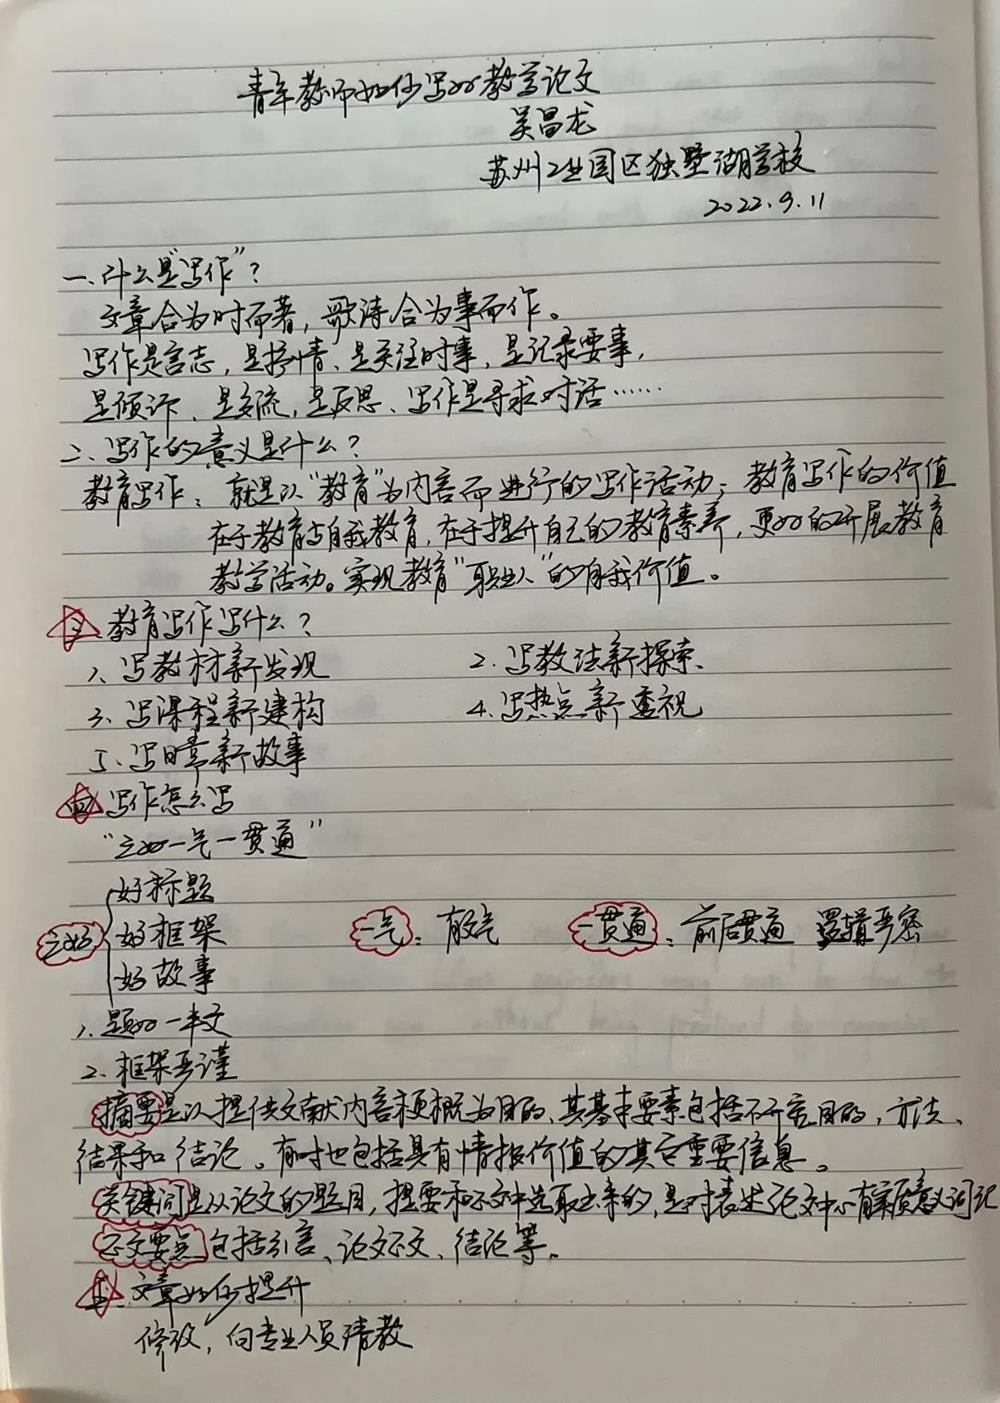 青年教师如何写好教学论文
吴昌龙
苏州工业园区独墅湖学校
2022.9.11
一、什么是“写作”?
文章合为时而著,歌诗合为事而作。
写作是言志,是抒情、是关注时事,是记录要事,
是倾诉、是交流,是反思、写作是寻求对话……
二、写作的意义是什么?
教育写作:就是以“教育”为内容而进行的写作活动;教育写作的价值
在于教育与自我教育,在于提升自己的教育素养,更好的开展教育
教学活动。实现教育“职业人”的自我价值。
三、教育写作写什么?
1、写教材新发现 2、写教法新探索、
3、写课程新建构 4、写热点新透视
5、写日常新故事
四、写作怎么写
“三好一气一贯通”
好标题
三好 好框架 一气:有文气 一贯通:前后贯通 逻辑严密
好故事
1、题好一半文
2、框架严谨
摘要是以提供文献内容梗概为目的、其基本要素包括研究目的,方法、
结果和结论。有时也包括具有情报价值的其它重要信息。
关键词是从论文的题目,提要和正文中选取出来的,是对表述论文中心有实质意义词记
正文要点包括引言、论文正文、结论等。
五、文章如何提升
修改,向专业人员请教